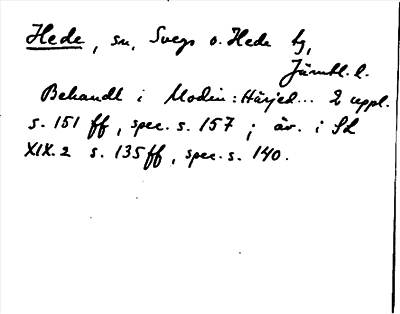 Hede, sn, Svegs o. Hede tg,
Jämtl. l.
Behandl i Modin: Härjed... 2 uppl.
s. 151 ff, spec. s. 157; äv. i SL
XIX.2 s. 135ff, spec. s. 140.